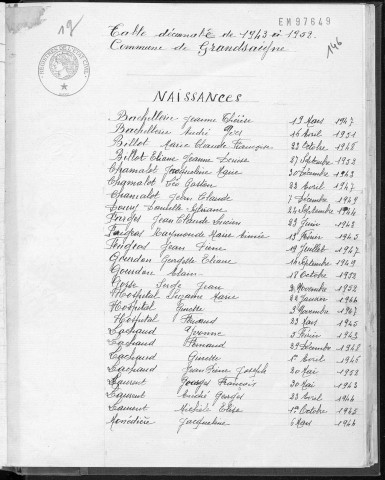 EM97649
19
146
Table décennale de 1943 à 1952.
Commune de Grandsaigne
NAISSANCES
Bachellerie Jeanne Thérèse 19 Mars 1947
Bachellerie André Yves 16 Avril 1951
Billot Marie Claude Françoise 22 Octobre 1948
Billot Eliane Jeanne Denise 27 Septembre 1952
Chamalot Jacqueline Marie 30 Décembre 1943
Chamalot Léo Gaston 22 Avril 1947
Chamalot Jean Claude 7 Décembre 1949
Danielle 24 Septembre 1944
Farges Jean Claude Lucien 23 Juin 1942
Farges Raymonde Marie Aimée 15 Février 1943
Jean Pierre 19 Juillet 1947
Gourdon Georgette Eliane 10 Septembre 1949
Gourdon Alain 18 Octobre 1952
Serge Jean 3 Novembre 1952
Hospital Suzanne Marie 22 Janvier 1944
Hospital Ginette 3 Novembre 1947
Hospital 23 Mars 1945
Lachaud Yvonne 3 Février 1943
Lachaud Fernand 29 Décembre 1948
Lachaud Ginette 1er Avril 1945
Lachaud Jean Pierre Joseph 20 Mai 1952
Laurent Georges François 30 Mai 1943
Laurent André Georges 23 Avril 1944
Laurent Michèle Elise 1er Octobre 1942
Monédière Jacqueline 6 Mars 1944